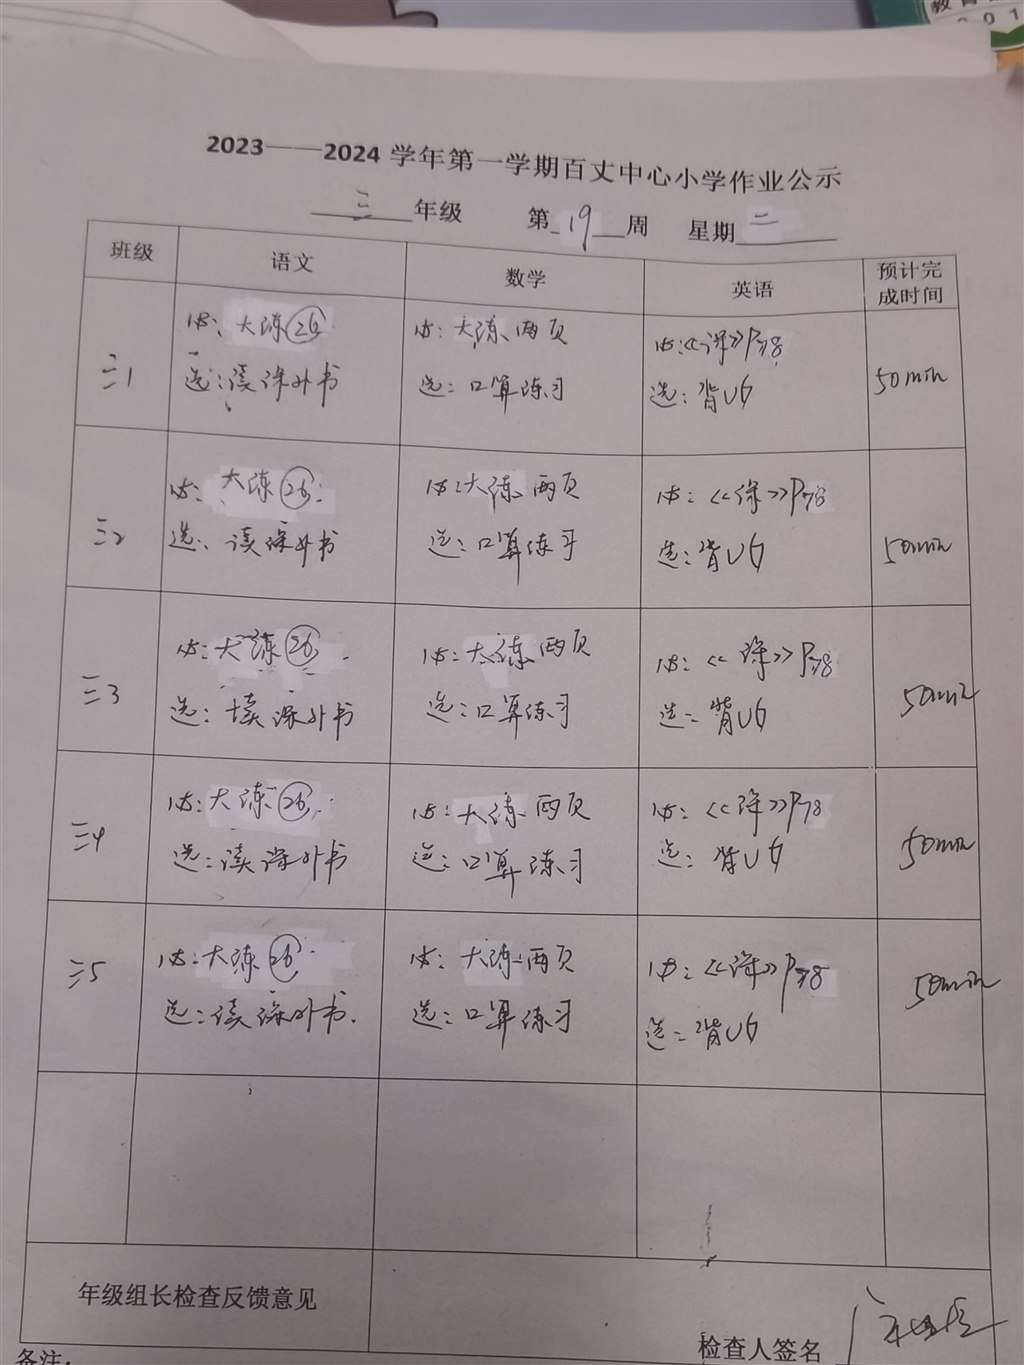 教育
201
2023——2024 学年第一学期百丈中心小学作业公示
三 年级 第 19 周 星期 二
班级 语文 数学 英语 预计完成时间
三1
必: 大练 26
选: 读课外书
必: 大练 两页
选: 口算练习
必: 《课》P78
选: 背U6
50min
三2
必: 大练 26
选: 读课外书
必: 大练 两页
选: 口算练习
必: 《课》P78
选: 背U6
50min
三3
必: 大练 26
选: 读课外书
必: 大练 两页
选: 口算练习
必: 《课》P78
选: 背U6
50min
三4
必: 大练 26
选: 读课外书
必: 大练 两页
选: 口算练习
必: 《课》P78
选: 背U6
50min
三5
必: 大练 26
选: 读课外书.
必: 大练 两页
选: 口算练习
必: 《课》P78
选: 背U6
50min
年级组长检查反馈意见
检查人签名
备注: